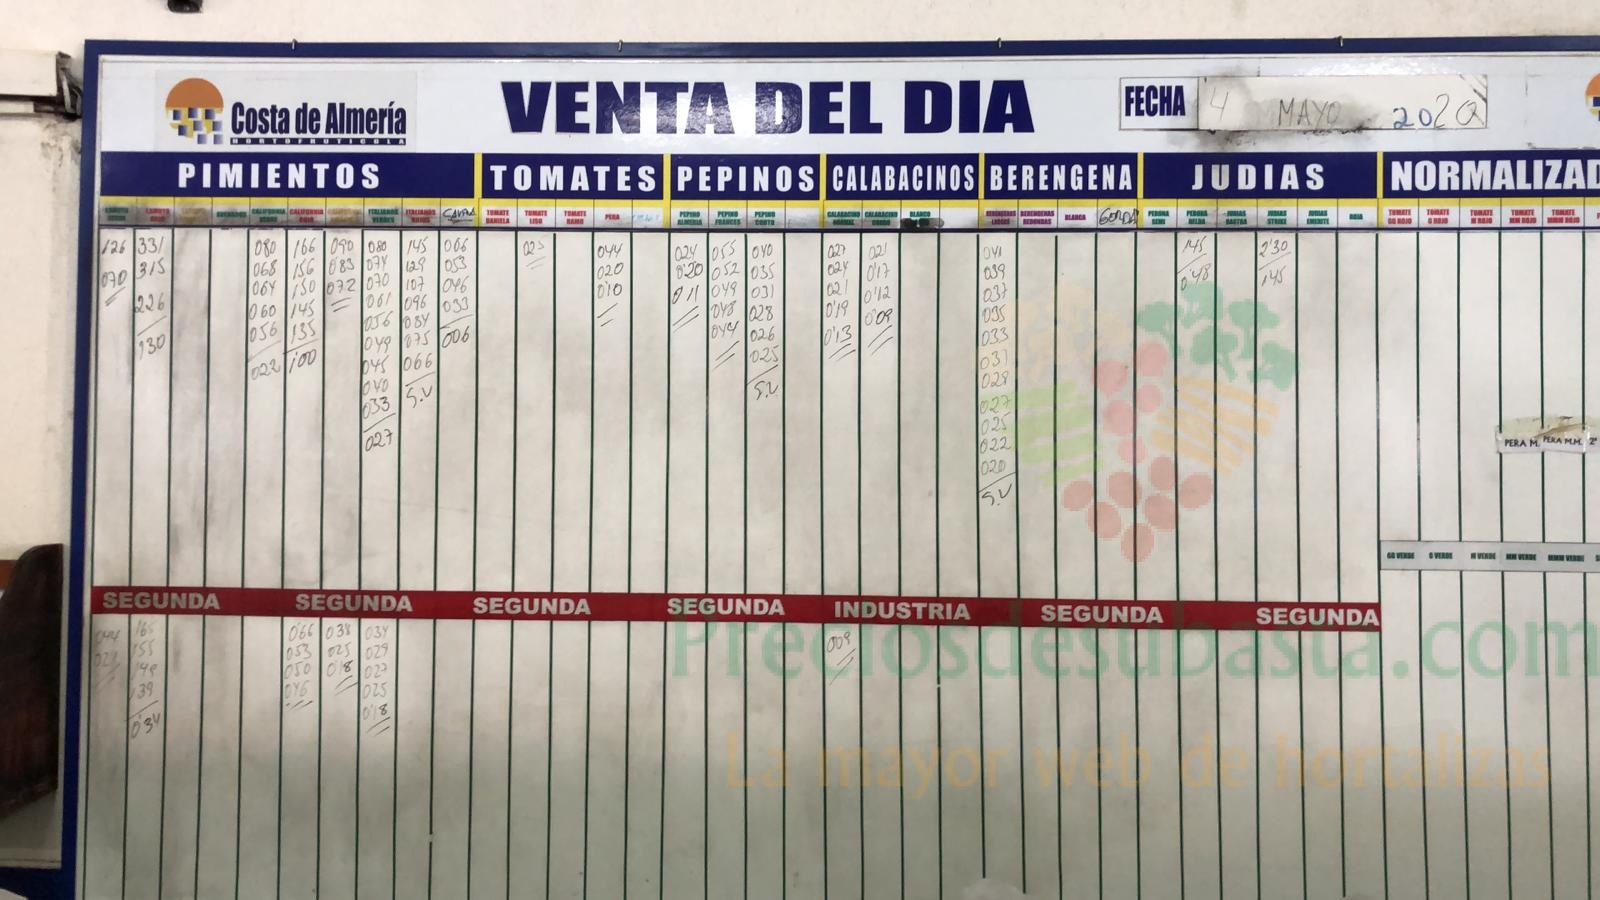 Costa de Almería
HORTOFRUTICOLA
VENTA DEL DIA
FECHA 4 MAYO 2020
PIMIENTOS TOMATES PEPINOS CALABACINOS BERENGENA JUDIAS NORMALIZAD
LAMUYO ROJO CALIFORNIA VERDE CALIFORNIA ROJO ITALIANOS VERDES ITALIANOS ROJOS TOMATE DANIELA TOMATE LISO TOMATE RAMO PERA PEPINO ALMERIA PEPINO FRANCES PEPINO CORTO CALABACINO NORMAL CALABACINO GORDO BLANCO BERENGENAS REDONDAS BLANCA GORDA PERONA SEMI PERONA HELDA JUDIAS RASTRA JUDIAS STRIKE JUDIAS EMERITE ROJA TOMATE GG ROJO TOMATE G ROJO TOMATE M ROJO TOMATE MM ROJO TOMATE MMM ROJO
126 331 080 166 090 080 145 066 044 024 055 040 027 021 041 145 2'30
315 068 156 083 074 129 053 020 0'20 052 035 024 0'17 039 0'48 145
070 064 150 072 070 107 046 0'10 011 049 031 021 0'12 037
226 060 145 061 096 033 048 028 0'19 0'09 035
130 056 135 056 084 006 044 026 0'13 033
022 100 049 075 025 031
045 066 S.V 028
040 S.V 027
033 025
027 022
020
S.V
PERA M. PERA M.M. 2ª
GG VERDE G VERDE M VERDE MM VERDE MMM VERDE
SEGUNDA SEGUNDA SEGUNDA SEGUNDA INDUSTRIA SEGUNDA SEGUNDA
044 165 066 038 034 009
155 053 025 029
149 050 0'18 027
139 046 025
0'34 0'18
Preciosdesubasta.com
La mayor web de hortalizas